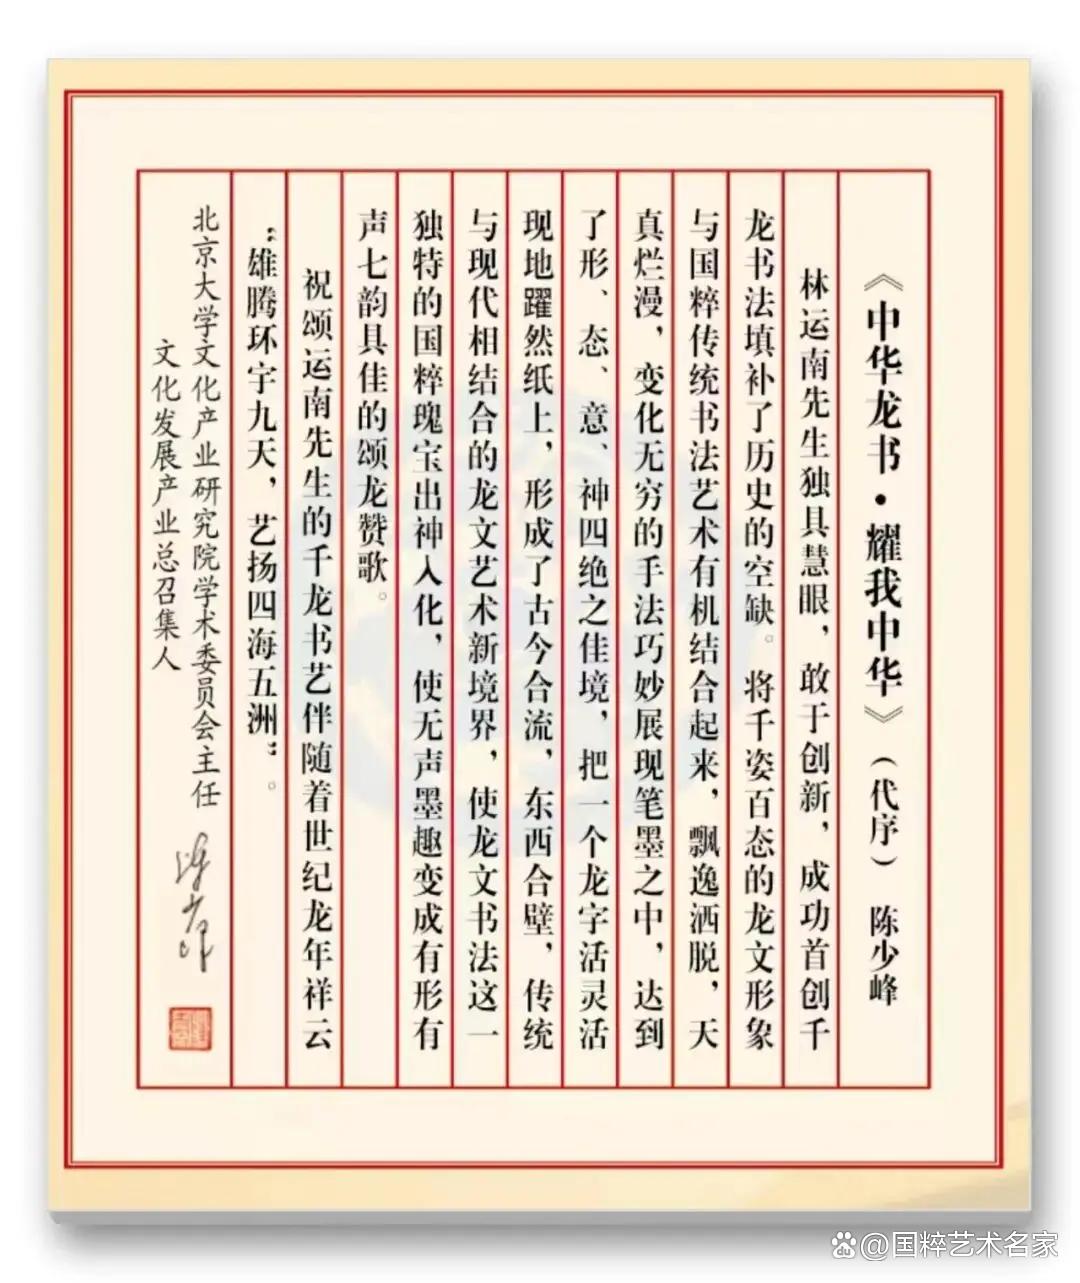 《中华龙书·耀我中华》（代序） 陈少峰
林运南先生独具慧眼，敢于创新，成功首创千
龙书法填补了历史的空缺。将千姿百态的龙文形象
与国粹传统书法艺术有机结合起来，飘逸洒脱，天
真烂漫，变化无穷的手法巧妙展现笔墨之中，达到
了形、态、意、神四绝之佳境，把一个龙字活灵活
现地躍然纸上，形成了古今合流，东西合壁，传统
与现代相结合的龙文艺术新境界，使龙文书法这一
独特的国粹瑰宝出神入化，使无声墨趣变成有形有
声七韵具佳的颂龙赞歌。
祝颂运南先生的千龙书艺伴随着世纪龙年祥云
“雄腾环宇九天，艺扬四海五洲”。
北京大学文化产业研究院学术委员会主任
文化发展产业总召集人
陈少峰
@国粹艺术名家